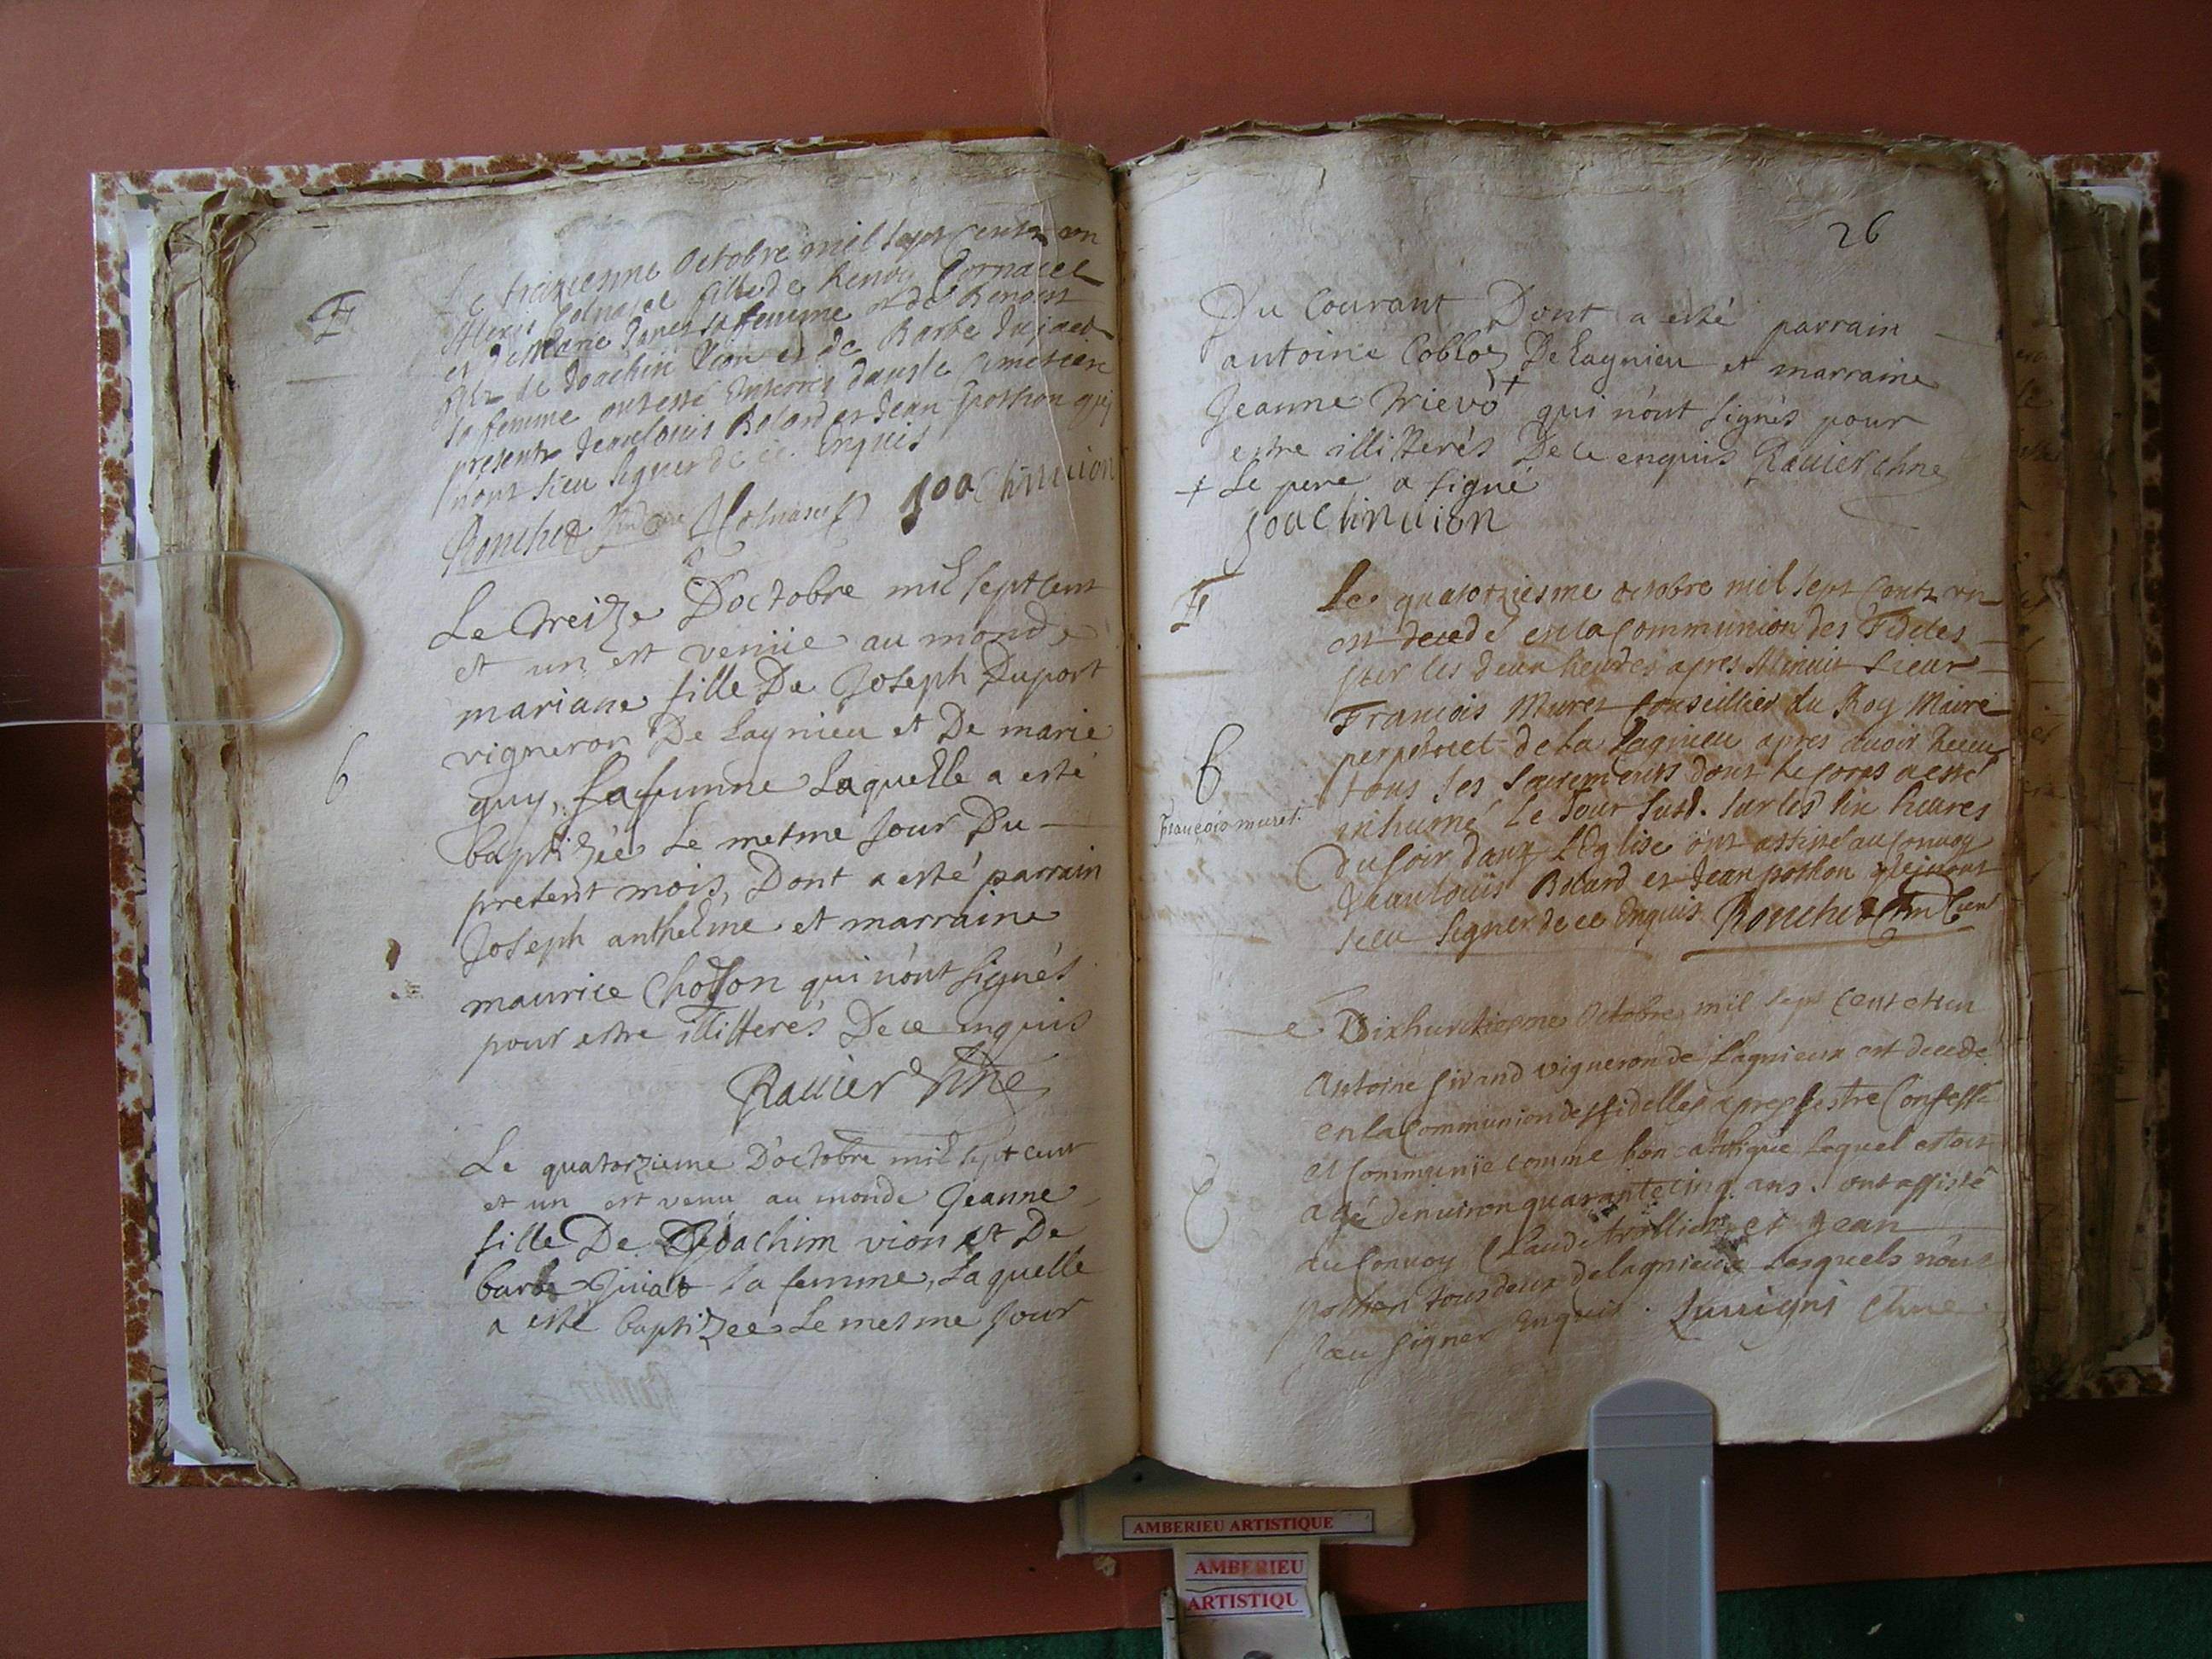 Le treiziesme Octobre mil sept cents un
Alexis Colnasel fille de
et de Marie sa femme et de Benoist
filz de Joachin Vion et de Barbe
sa femme ont esté Enterrés dans le Cimetiere
presents Jeanlouis Bolard et Jean pothon qui
n'ont sceu signer de ce Enquis
Ronchet Joachin uion
F
Le treize D'octobre mil sept cent
et un est venüe au monde
mariane fille De Joseph Duport
vigneron De Lagnieu et De marie
guy, sa femme Laquelle a esté
baptizée Le mesme Jour Du
present mois, Dont a esté parrain
Joseph anthelme et marraine
maurice qui n'ont signés
pour estre illitterés De ce enquis
Rauier
6
Le quatorzieme D'octobre mil sept cent
et un est venu au monde Jeanne
fille De Joachim vion et De
barbe sa femme, Laquelle
a esté baptizée Le mesme Jour
26
Du Courant Dont a esté parrain
antoine De Lagnieu et marraine
Jeanne + qui n'ont signés pour
estre illitterés De ce enquis Rauier
+ Le pere a signé
Joachin uion
F
Le quatorziesme octobre mil sept Cents un
est decedé en la Communion des Fideles
sur les deux heures apres Minuit Sieur
Francois Muret Conseillier du Roy Maire
perpetuel de La Lagnieu apres avoir Receu
tous ses Sacrements dont le corps a esté
inhumé Le Jour susd. sur les six heures
du soir dans L'Eglise ont assisté au Convoy
Jeanlouis Bolard et Jean pothon n'ont
sceu signer de ce Enquis Ronchet
6
François muret.
Le Dixhuictiesme Octobre mil sept Cent et un
Antoine Girand vigneron de Lagnieux est decede
en la Communion des fidelles apres s'estre Confessé
et Communie comme bon Laquel estoit
agé denuiron quarante cinq ans. ont assisté
au Convoy Claude trollier et Jean
pothon tous deux de lagnieux Lesquels n'ont
sceu signer Enquis.